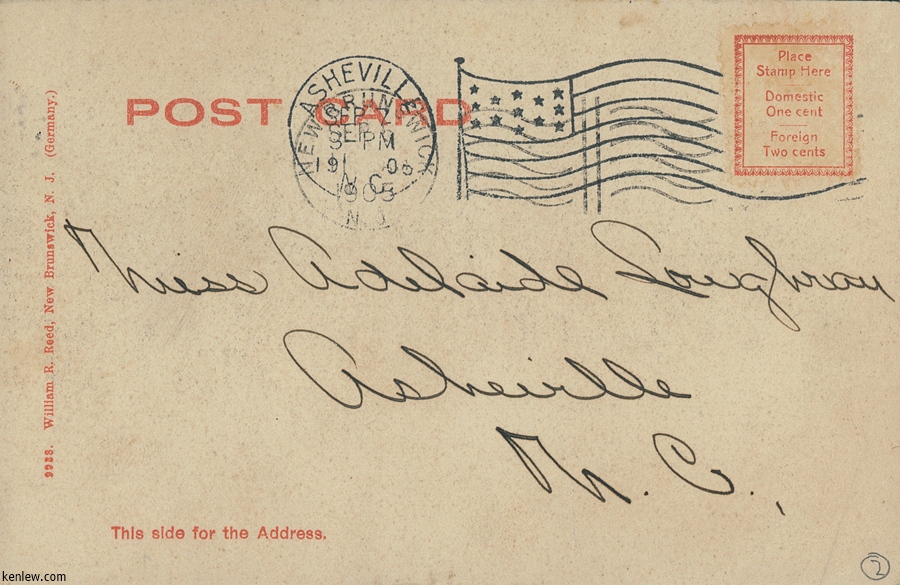 POST CARD
ASHEVILLE
NEW BRUNSWICK
SEP 2
SEP
PM
19 0
N.C.
1905
N.J.
Place
Stamp Here
Domestic
One cent
Foreign
Two cents
9938. William R. Reed, New Brunswick, N. J. (Germany.)
Miss Adelaide Loughran
Asheville
N. C.,
This side for the Address.
2
kenlew.com